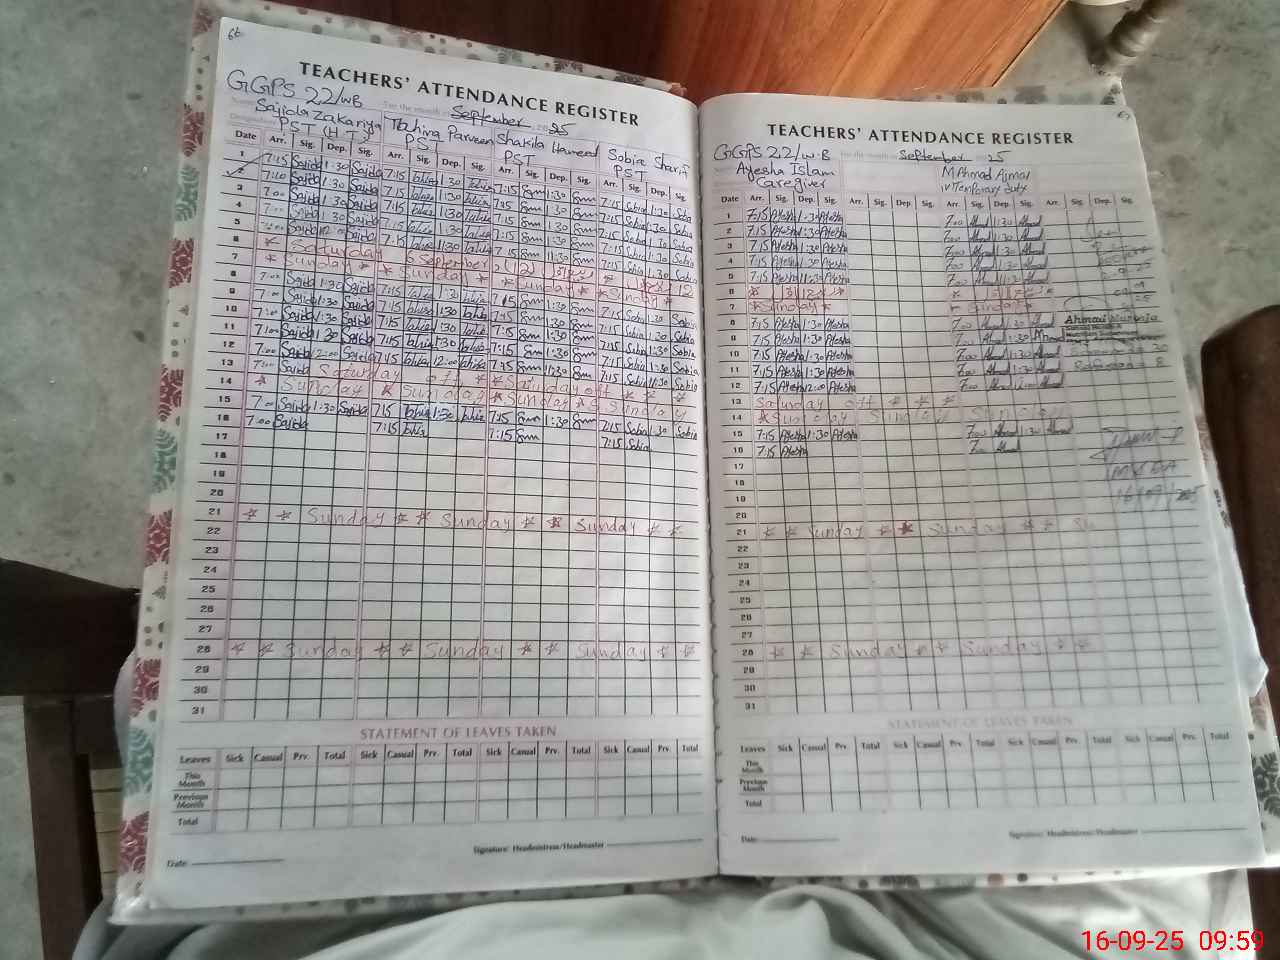 66
TEACHERS' ATTENDANCE REGISTER
GGPS 22/WB For the month of September 2025
Sajida Zakariya Tahira Parveen Shakila Hameed Sobia Sharif
PST (H.T) PST PST PST
Date Arr. Sig. Dep. Sig. Arr. Sig. Dep. Sig. Arr. Sig. Dep. Sig. Arr. Sig. Dep. Sig.
1 7:15 Sajida 1:30 Sajida 7:15 Tahira 1:30 Tahira 7:15 1:30 7:15 Sobia 1:30 Sobia
2 7:20 Sajida 1:30 Sajida 7:15 Tahira 1:30 Tahira 7:15 1:30 7:15 Sobia 1:30 Sobia
3 7:00 Sajida 1:30 Sajida 7:15 Tahira 1:30 Tahira 7:15 1:30 7:15 Sobia 1:30 Sobia
4 7:00 Sajida 1:30 Sajida 7:15 Tahira 1:30 Tahira 7:15 1:30 7:15 Sobia 1:30 Sobia
5 7:00 Sajida Sajida 7:15 Tahira 11:30 Tahira 7:15 11:30 7:15 Sobia 11:30 Sobia
6 * Saturday 6 September (12)
7 * Sunday * * Sunday * * Sunday * * Sunday *
8 7:00 Sajida 1:30 Sajida 7:15 Tahira 1:30 Tahira 7:15 1:30 7:15 Sobia 1:30 Sobia
9 7:00 Sajida 1:30 Sajida 7:15 Tahira 1:30 Tahira 7:15 1:30 7:15 Sobia 1:30 Sobia
10 7:00 Sajida 1:30 Sajida 7:15 Tahira 1:30 Tahira 7:15 1:30 7:15 Sobia 1:30 Sobia
11 7:00 Sajida 1:30 Sajida 7:15 Tahira 1:30 Tahira 7:15 1:30 7:15 Sobia 1:30 Sobia
12 7:00 Sajida 12:00 Sajida 7:15 Tahira 12:00 Tahira 7:15 11:30 7:15 Sobia 11:30 Sobia
13 Saturday off * * Saturday off * *
14 * Sunday * Sunday * Sunday * Sunday
15 7:00 Sajida 1:30 Sajida 7:15 Tahira 1:30 Tahira 7:15 1:30 7:15 Sobia 1:30 Sobia
16 7:00 Sajida 7:15 Tahira 7:15 7:15 Sobia
17
18
19
20
21 * * Sunday * * Sunday * * Sunday * *
22
23
24
25
26
27
28 * * Sunday * * Sunday * * Sunday * *
29
30
31
STATEMENT OF LEAVES TAKEN
Leaves Sick Casual Prv. Total Sick Casual Prv. Total Sick Casual Prv. Total Sick Casual Prv. Total
This Month
Previous Month
Total
Date: Signature: Headmistress/Headmaster
67
TEACHERS' ATTENDANCE REGISTER
GGPS 22/W.B For the month of September 25
Ayesha Islam M Ahmad Ajmal
Caregiver
Date Arr. Sig. Dep. Sig. Arr. Sig. Dep. Sig. Arr. Sig. Dep. Sig. Arr. Sig. Dep. Sig.
1 7:15 Ayesha 1:30 Ayesha 7:00 Ahmad 1:30 Ahmad
2 7:15 Ayesha 1:30 Ayesha 7:00 Ahmad 1:30 Ahmad
3 7:15 Ayesha 1:30 Ayesha 7:00 Ahmad 1:30 Ahmad
4 7:15 Ayesha 1:30 Ayesha 7:00 Ahmad 1:30 Ahmad
5 7:15 Ayesha 11:30 Ayesha 7:00 Ahmad Ahmad
6
7 * Sunday * * Sunday *
8 7:15 Ayesha 1:30 Ayesha 7:00 Ahmad 1:30 Ahmad
9 7:15 Ayesha 1:30 Ayesha 7:00 Ahmad 1:30 Ahmad
10 7:15 Ayesha 1:30 Ayesha 7:00 Ahmad 1:30 Ahmad
11 7:15 Ayesha 1:30 Ayesha 7:00 Ahmad 1:30 Ahmad
12 7:15 Ayesha 12:00 Ayesha 7:00 Ahmad Ahmad
13 Saturday off * * *
14 * Sunday Sunday Sunday
15 7:15 Ayesha 1:30 Ayesha 7:00 Ahmad 1:30 Ahmad
16 7:15 Ayesha 7:00 Ahmad
17
18
19
20
21 * * Sunday * * Sunday * * Su
22
23
24
25
26
27
28 * * Sunday * * Sunday * *
29
30
31
16/09/2025
STATEMENT OF LEAVES TAKEN
Leaves Sick Casual Prv. Total Sick Casual Prv. Total Sick Casual Prv. Total Sick Casual Prv. Total
This Month
Previous Month
Total
Date: Signature: Headmistress/Headmaster
16-09-25 09:59